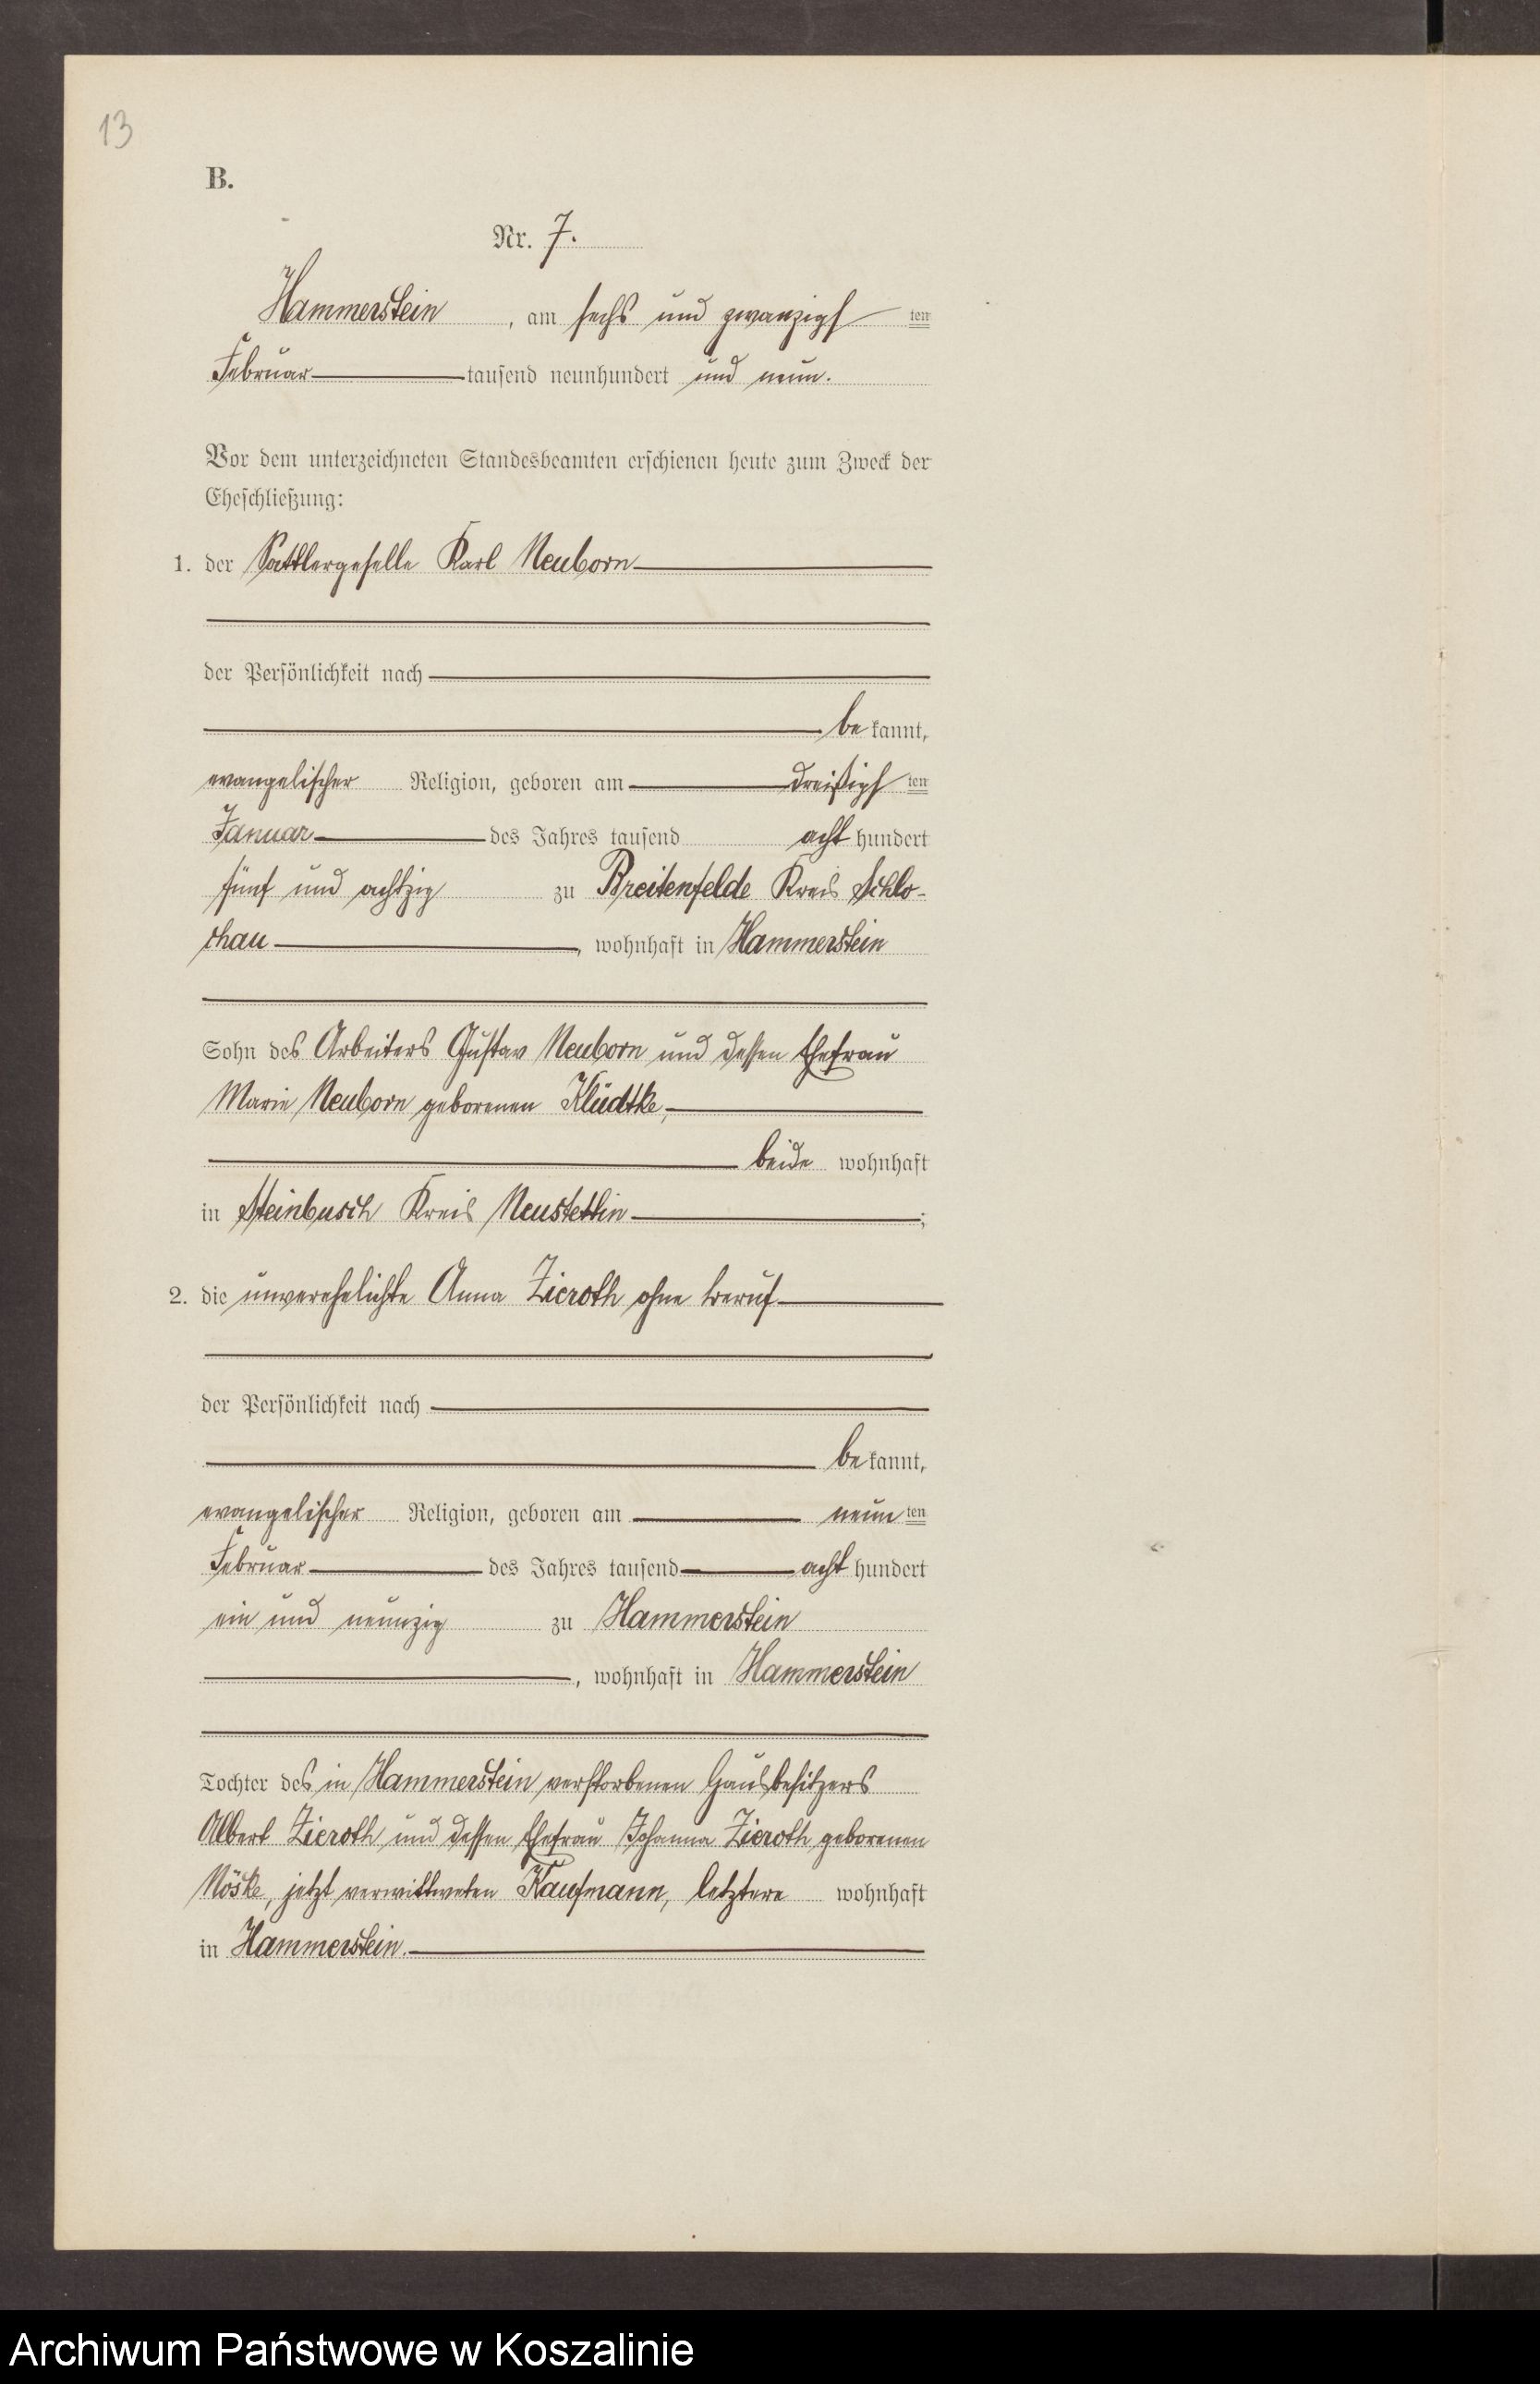 13
B.
Nr. 7.
Hammerstein, am sechs und zwanzigsten
Februar tausend neunhundert und neun.
Vor dem unterzeichneten Standesbeamten erschienen heute zum Zweck der
Eheschließung:
1. der Sattlergeselle Karl Neuborn
der Persönlichkeit nach
bekannt,
evangelischer Religion, geboren am dreißigsten
Januar des Jahres tausend acht hundert
fünf und achtzig zu Breitenfelde Kreis Schlo-
chau, wohnhaft in Hammerstein
Sohn des Arbeiters Gustav Neuborn und dessen Ehefrau
Marie Neuborn geborenen Klüdtke,
beide wohnhaft
in Steinbusch Kreis Neustettin;
2. die unverehelichte Anna Zieroth ohne Beruf
der Persönlichkeit nach
bekannt,
evangelischer Religion, geboren am neunten
Februar des Jahres tausend acht hundert
ein und neunzig zu Hammerstein
, wohnhaft in Hammerstein
Tochter des in Hammerstein verstorbenen Hausbesitzers
Albert Zieroth und dessen Ehefrau Johanna Zieroth geborenen
Nöske, jetzt verwittweten Kaufmann, letztere wohnhaft
in Hammerstein.
Archiwum Państwowe w Koszalinie